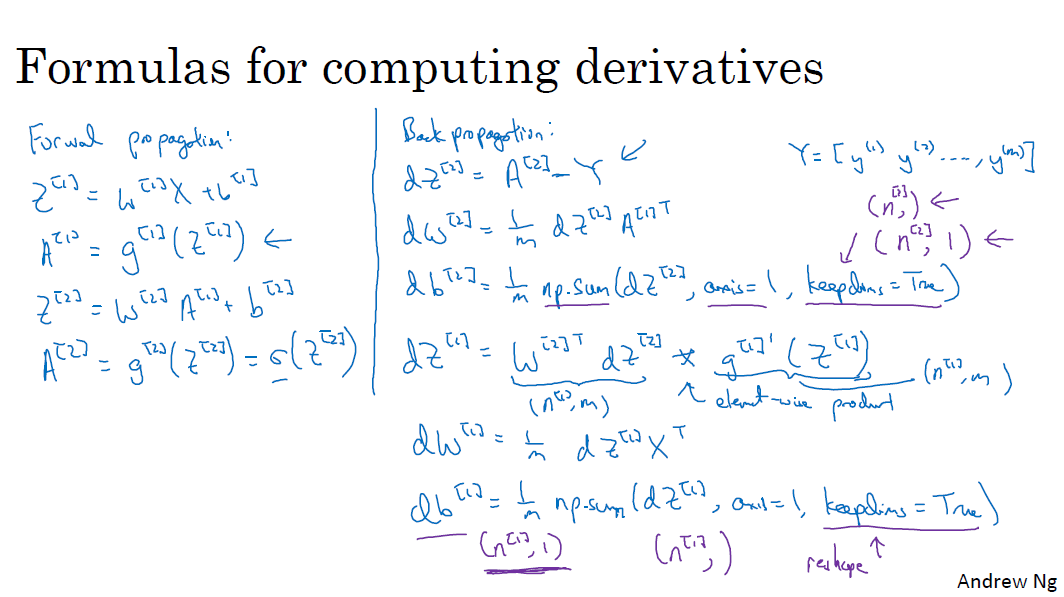 Formulas for computing derivatives
Forward propagation:
Z^[1] = W^[1] X + b^[1]
A^[1] = g^[1](Z^[1]) ←
Z^[2] = W^[2] A^[1] + b^[2]
A^[2] = g^[2](Z^[2]) = σ(Z^[2])
Back propagation:
dZ^[2] = A^[2] - Y ↙
dW^[2] = 1/m dZ^[2] A^[1]T
db^[2] = 1/m np.sum(dZ^[2], axis=1, keepdims=True)
dZ^[1] = W^[2]T dZ^[2] * g^[1]'(Z^[1])
(n^[1], m)
↖ element-wise product
(n^[1], m)
dW^[1] = 1/m dZ^[1] X^T
db^[1] = 1/m np.sum(dZ^[1], axis=1, keepdims=True)
(n^[1], 1)
(n^[1],)
reshape ↑
Y = [y^(1) y^(2) ...., y^(m)]
(n^[2],) ←
↙ (n^[2], 1) ←
Andrew Ng